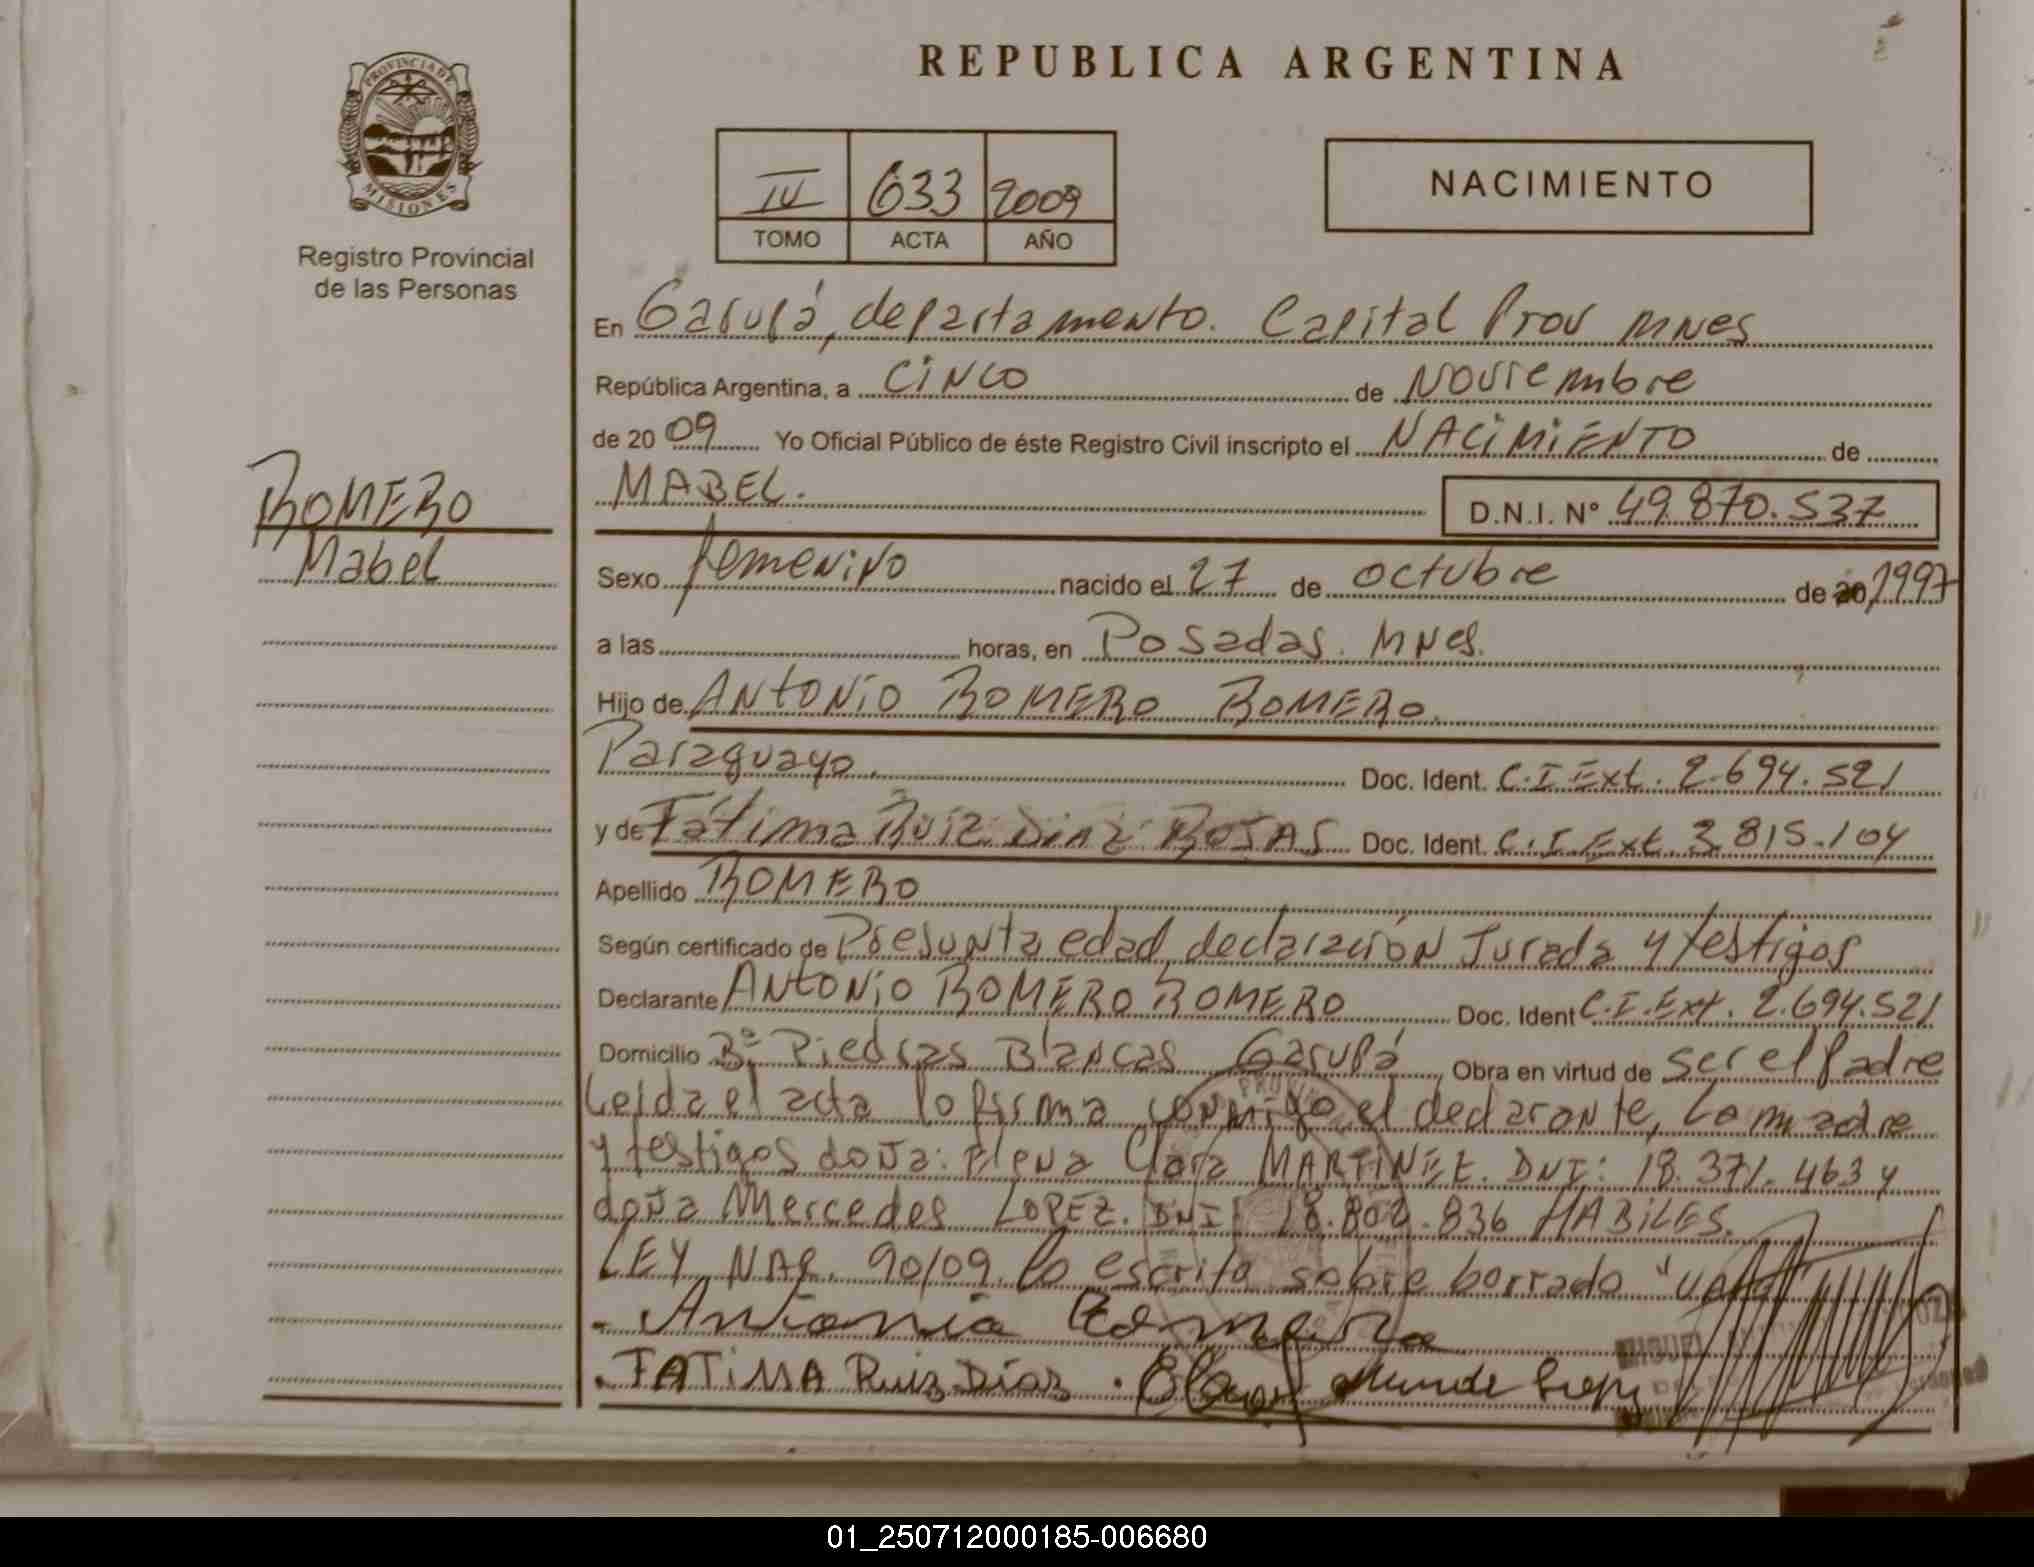 REPUBLICA ARGENTINA
PROVINCIA DE
MISIONES
Registro Provincial
de las Personas
IV 633 2009
TOMO ACTA AÑO
NACIMIENTO
En Garupá, departamento. Capital Prov MNES
República Argentina, a CINCO de Noviembre
de 20 09 Yo Oficial Público de éste Registro Civil inscripto el NACIMIENTO de
MABEL. D.N.I. N° 49.870.537
ROMERO
Mabel
Sexo femenino nacido el 27 de octubre de 20 1997
a las horas, en Posadas. MNES.
Hijo de ANTONIO ROMERO ROMERO
Paraguayo. Doc. Ident. C.I Ext. 2.694.521
y de Fátima Ruiz Diaz ROJAS Doc. Ident. C.I. Ext 3.815.104
Apellido ROMERO
Según certificado de Presunta edad, declaración Jurada y testigos
Declarante ANTONIO ROMERO ROMERO Doc. Ident C.I. Ext. 2.694.521
Domicilio B° Piedras Blancas Garupá, Obra en virtud de ser el Padre
Leída el acta lo firma conmigo el declarante, la madre
y testigos doña: Elena Clara MARTINEZ. DNI: 18.371.463 y
doña Mercedes LOPEZ. DNI 18.802.836 HABILES.
LEY NAC. 90/09. lo escrito sobre borrado
Antonio Romero
. FATIMA Ruiz Díaz .
MIGUEL
01_250712000185-006680